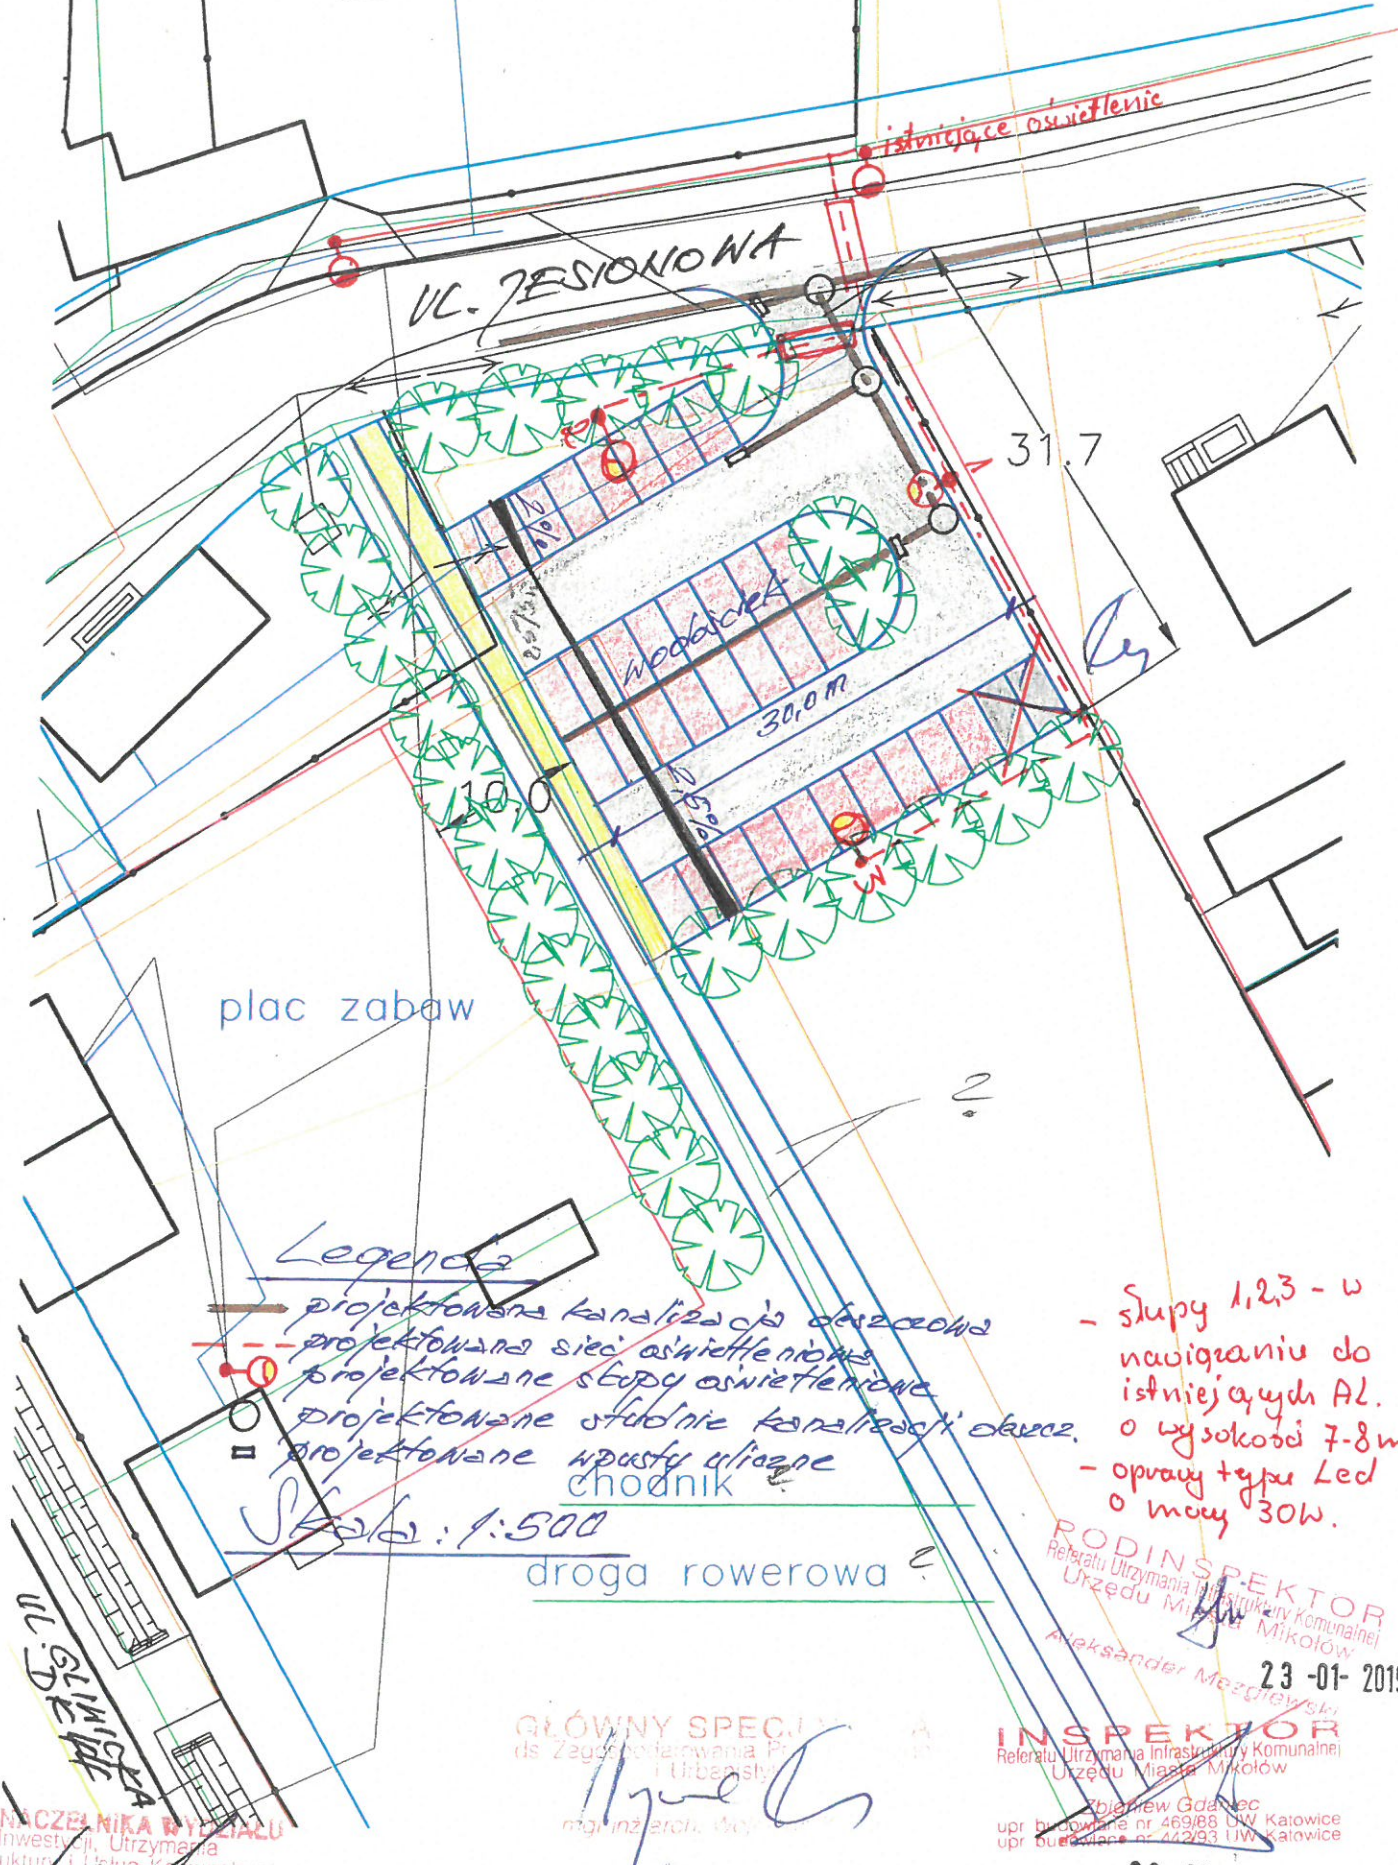 istniejące oświetlenie
UL. JESIONOWA
31.7
2%
wodościek
30,0 m
2,5%
10.0
2
1
3
plac zabaw
?
Legenda
projektowana kanalizacja deszczowa
projektowana sieć oświetleniowa
projektowane słupy oświetleniowe
projektowane studnie kanalizacji deszcz.
projektowane wpusty uliczne
chodnik ?
Skala: 1:500
droga rowerowa ?
- słupy 1,2,3 - w
nawiązaniu do
istniejących AL.
o wysokości 7-8 m
- oprawy typu Led
o mocy 30W.
PODINSPEKTOR
Referatu Utrzymania Infrastruktury Komunalnej
Urzędu Miasta Mikołów
Aleksander
23 -01- 2019
UL. GLIWICKA
DK
GŁÓWNY
ds Zagospodarowania
i Urbanistyki
mgr inż. arch.
INSPEKTOR
Referatu Utrzymania Infrastruktury Komunalnej
Urzędu Miasta Mikołów
Zbigniew Gdaniec
upr budowlane nr 469/88 UW Katowice
upr budowlane nr 442/93 UW Katowice
NACZELNIKA WYDZIAŁU
Inwestycji, Utrzymania